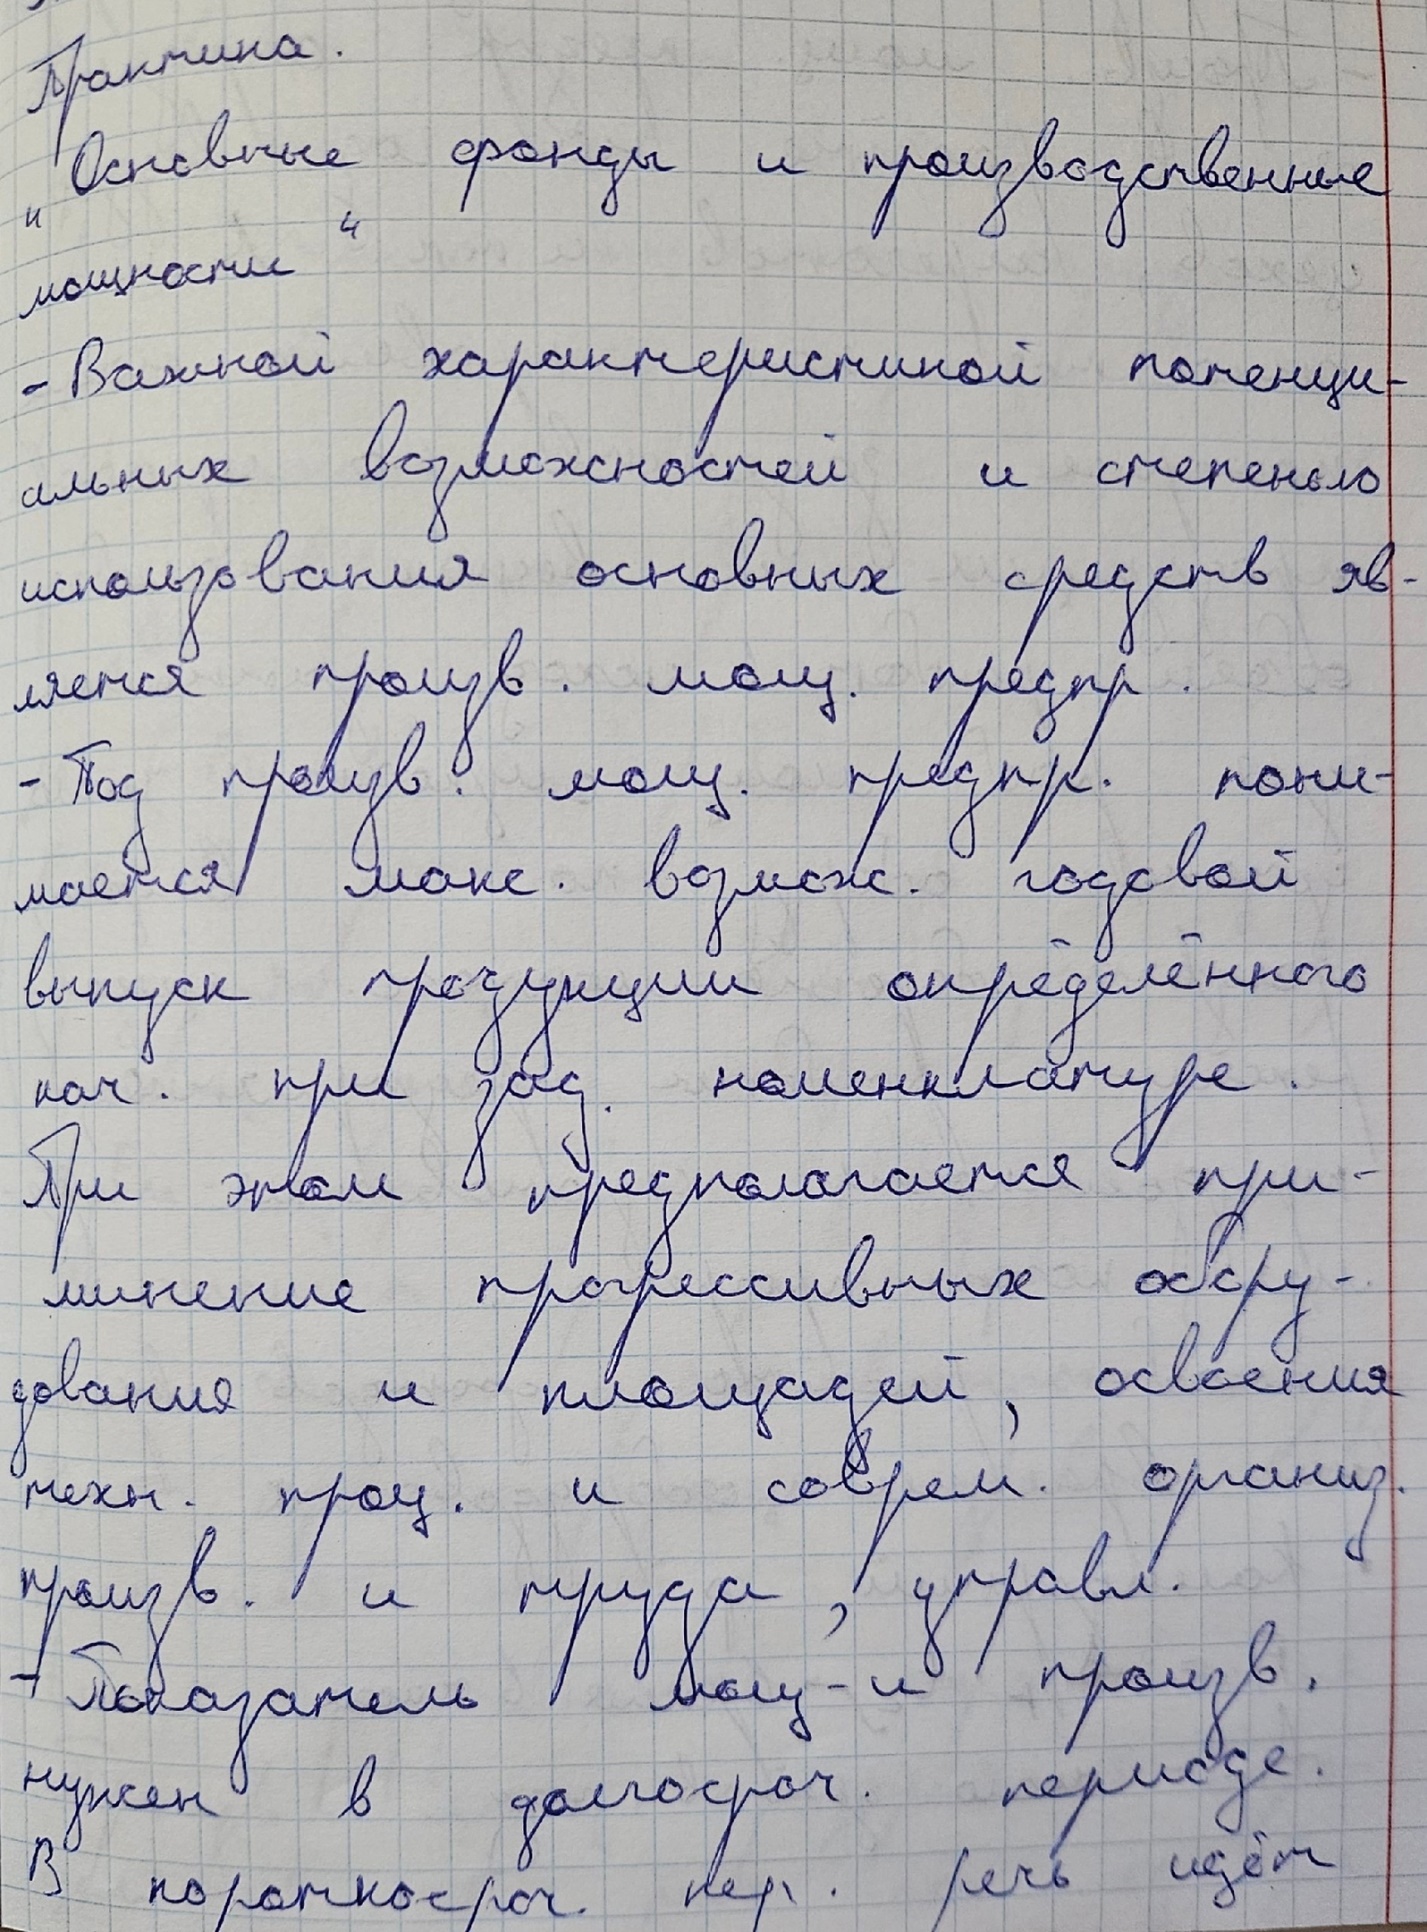 Практика.
"Основные фонды и производственные
мощности"
- Важной характеристикой потенци-
альных возможностей и степенью
использования основных средств яв-
ляется произв. мощ. предпр.
- Под произв. мощ. предпр. пони-
мается макс. возмож. годовой
выпуск продукции определённого
кач. при зад. номенклатуре.
При этом предполагается при-
минение прогрессивных обору-
дования и площадей, освоения
техн. проц. и соврем. организ.
произв. и труда, управл.
- Показатель мощ-и произв.
нужен в долгосроч. периоде.
В короткосроч. пер. речь идёт